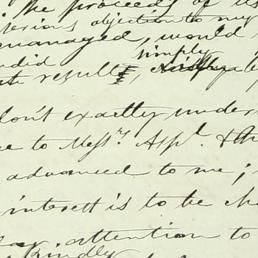 the proceeds of its
objection to my
managed, would
did simply
result,
don't exactly under
to Messrs. Appl. & th
advanced to me;
interest is to be cha
attention to
Kindly